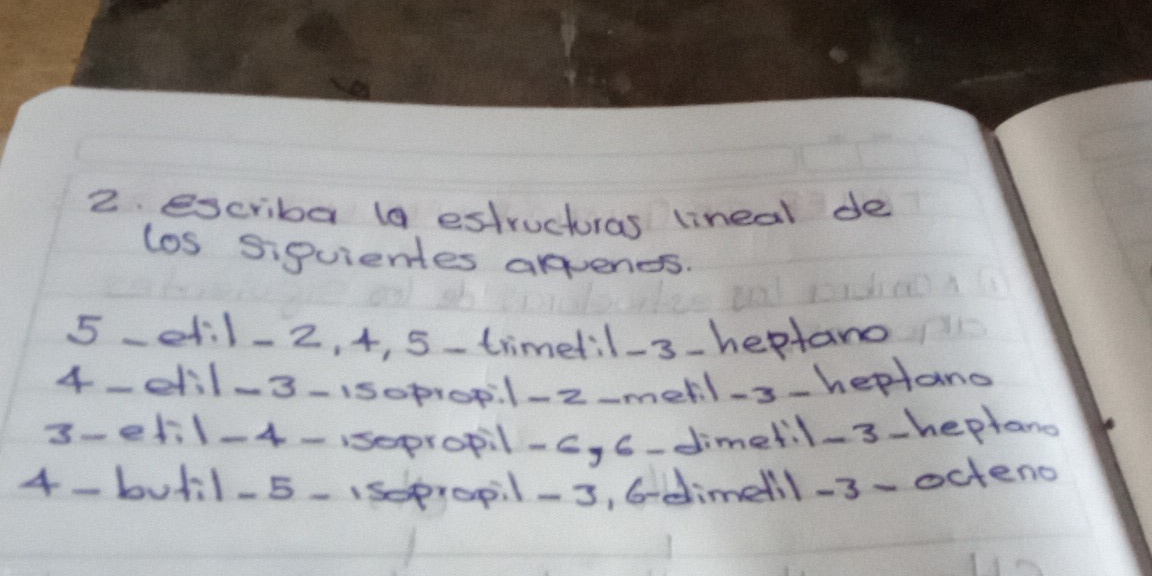 2. escriba la estructuras lineal de
los siguientes alquenos.
5-etil-2,4,5-trimetil-3-heptano
4-etil-3-isopropil-2-metil-3-heptano
3-etil-4-isopropil-6,6-dimetil-3-heptano
4-butil-5-isopropil-3,6-dimetil-3-octeno